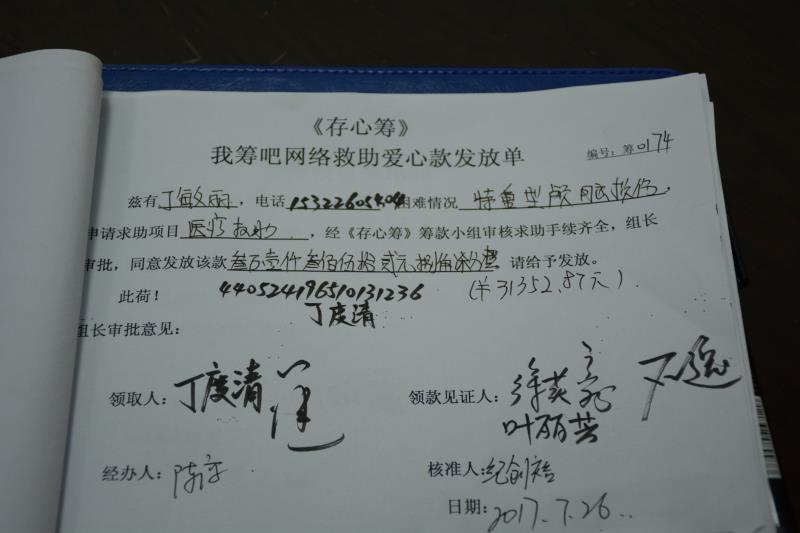 《存心筹》
我筹吧网络救助爱心款发放单
编号：筹0174
兹有丁敏丽，电话15322605404困难情况 特重型颅脑损伤，
申请求助项目 医疗救助，经《存心筹》筹款小组审核求助手续齐全，组长
审批，同意发放该款叁万壹仟叁佰伍拾贰元捌角柒分整 请给予发放。
此荷！ 440524196510131236 （¥31352.87元）
丁度清
组长审批意见：
领取人：丁度清
领款见证人：徐英
叶丽芸
经办人：陈
核准人：纪创
日期：2017.7.26